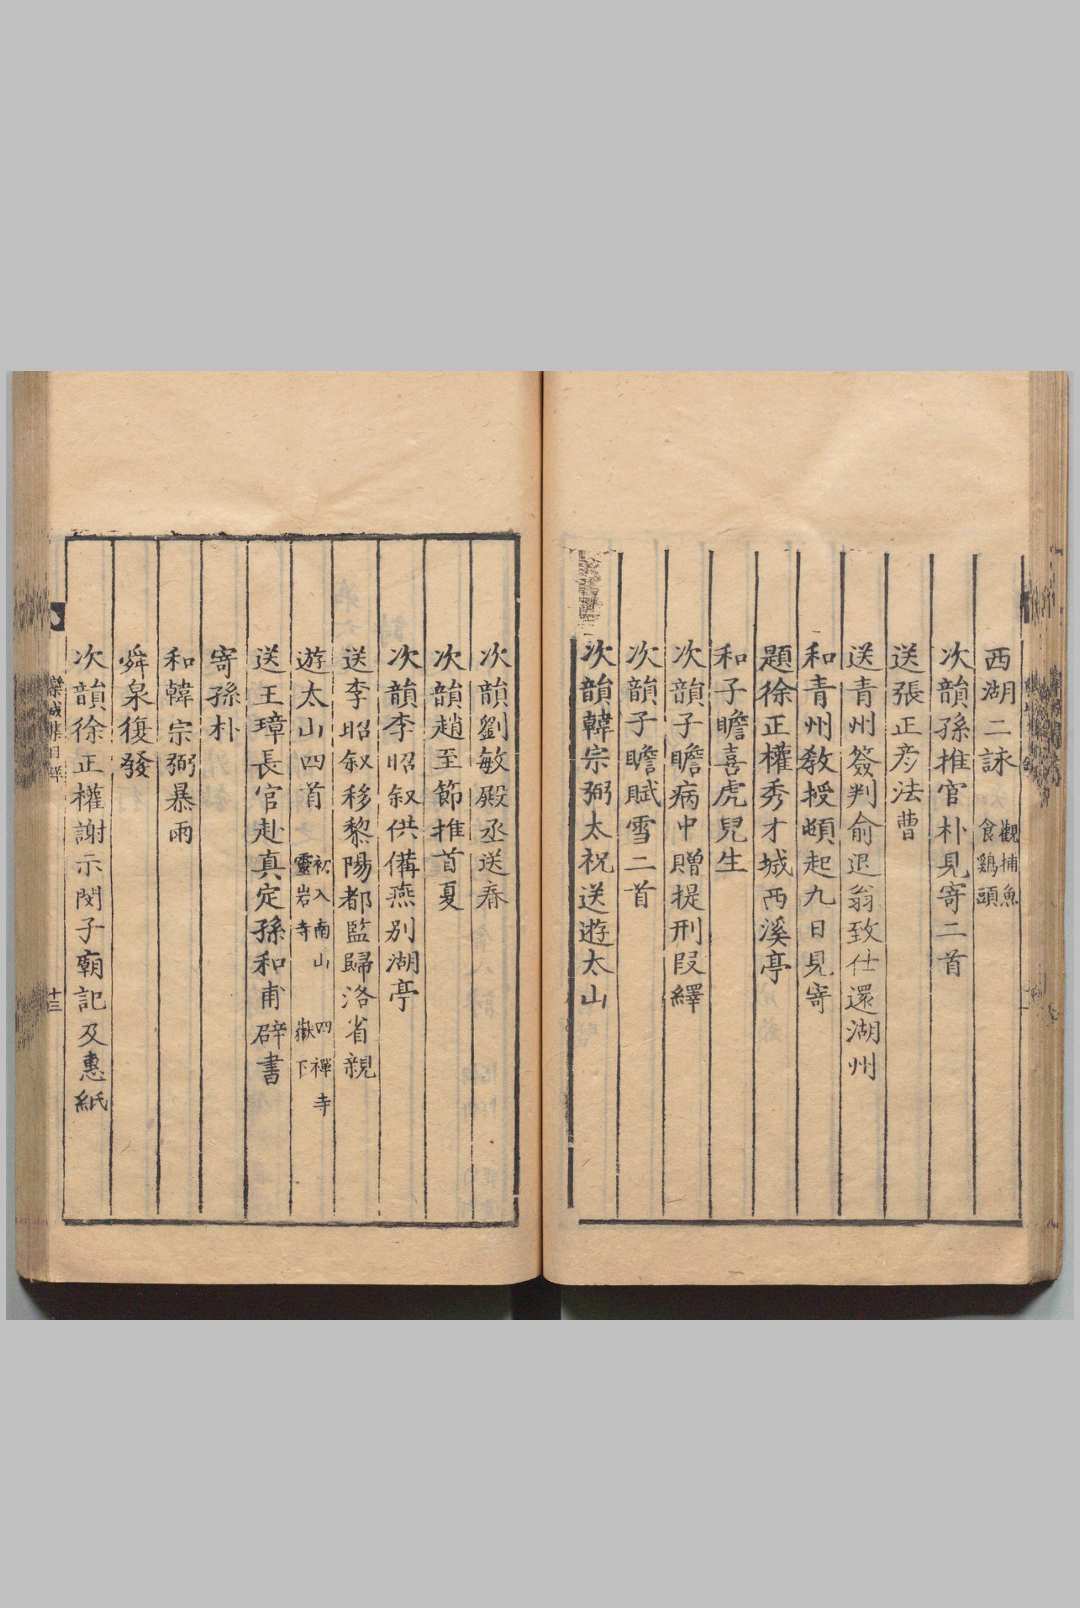 西湖二詠 觀捕魚 食鷄頭
次韻孫推官朴見寄二首
送張正彥法曹
送青州簽判俞退翁致仕還湖州
和青州教授頓起九日見寄
題徐正權秀才城西溪亭
和子瞻喜虎兒生
次韻子瞻病中贈提刑段繹
次韻子瞻賦雪二首
次韻韓宗弼太祝送遊太山
次韻劉敏殿丞送春
次韻趙至節推首夏
次韻李昭叙供備燕別湖亭
送李昭叙移黎陽都監歸洛省親
遊太山四首 初入南山 四禪寺 靈岩寺 嶽下
送王璋長官赴真定孫和甫辟書
寄孫朴
和韓宗弼暴雨
舜泉復發
次韻徐正權謝示閔子廟記及惠紙
欒城集目錄
十三